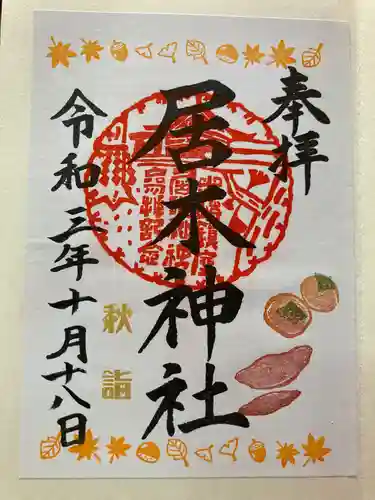 奉拝
居木神社
令和三年十月十八日
秋詣